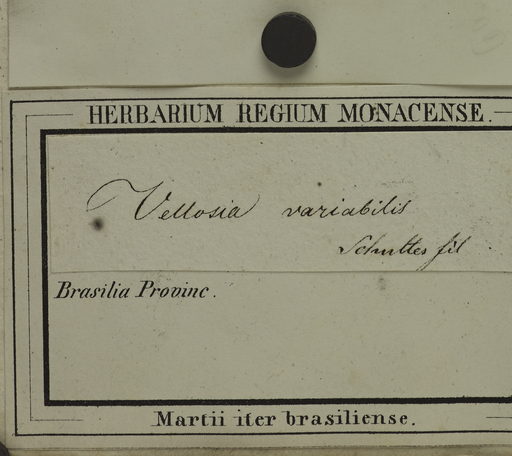 HERBARIUM REGIUM MONACENSE.
Vellosia variabilis
Schultes fil
Brasilia Provinc.
Martii iter brasiliense.